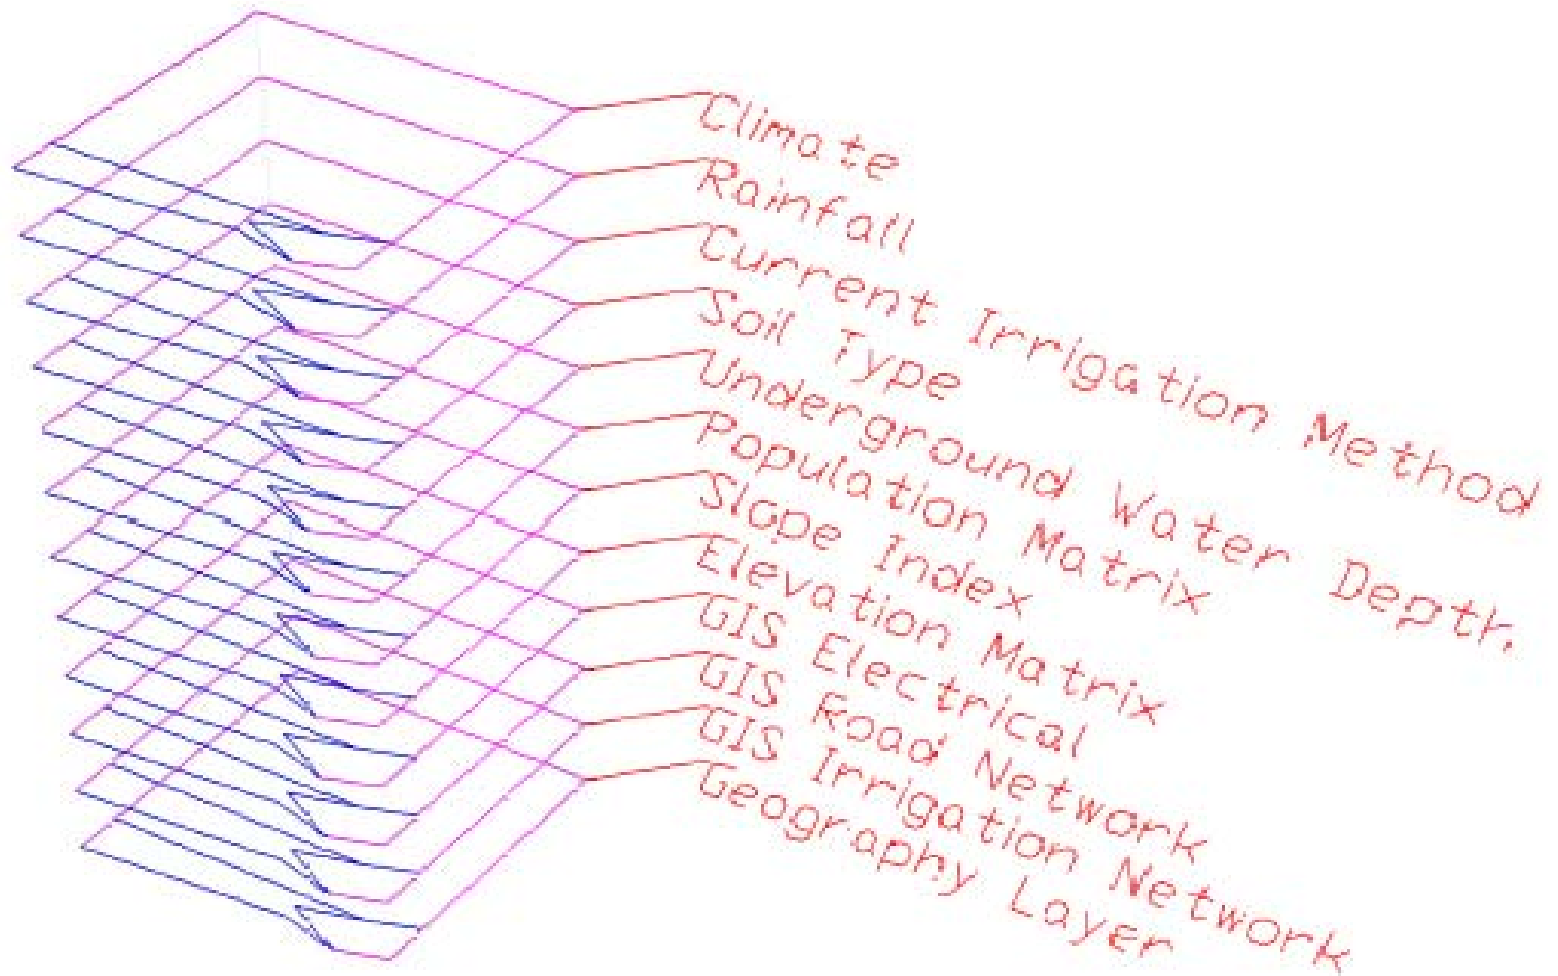 Climate
Rainfall
Current Irrigation Method
Soil Type
Underground Water Depth.
Population Matrix
Slope Index
Elevation Matrix
GIS Electrical
GIS Road Network
GIS Irrigation Network
Geography Layer